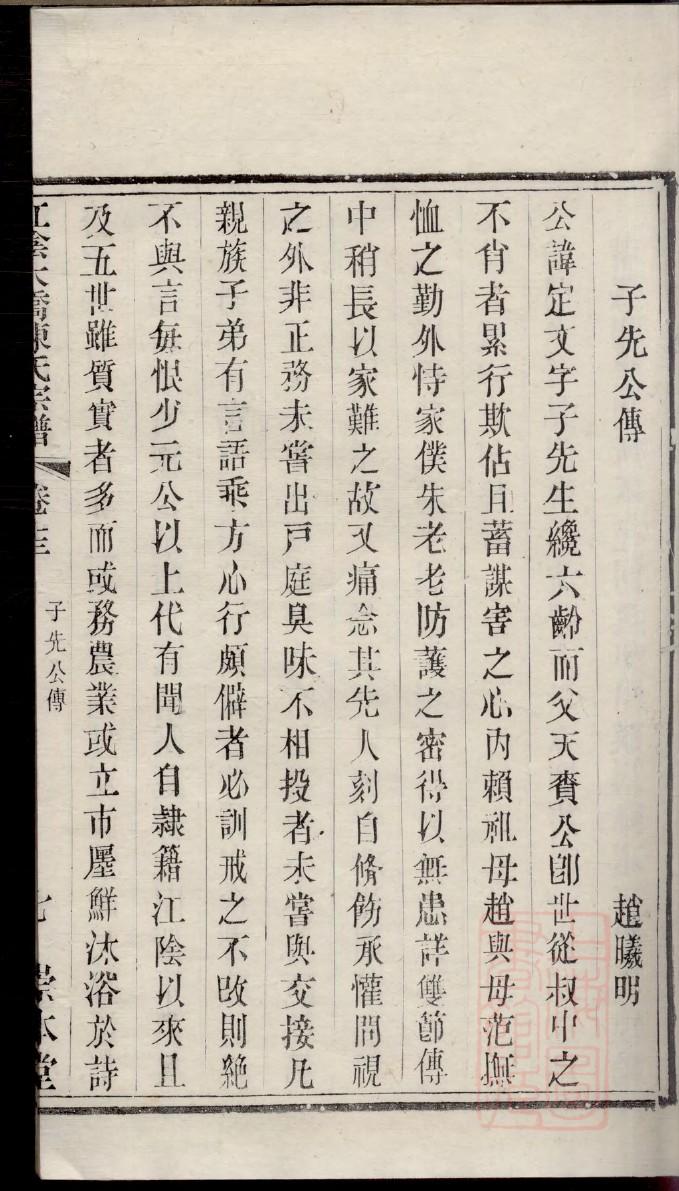 子先公傳
趙曦明
公諱定文字子先生纔六齡而父天賚公卽世從叔中之
不肖者累行欺佔且蓄謀害之心內賴祖母趙與母范撫
恤之勤外恃家僕朱老老防護之密得以無患詳雙節傳
中稍長以家難之故又痛念其先人刻自脩飭承懽問視
之外非正務未嘗出戸庭臭味不相投者未嘗與交接凡
親族子弟有言語乖方心行頗僻者必訓戒之不改則絶
不與言每恨少元公以上代有聞人自隸籍江陰以來且
及五世雖質實者多而或務農業或立市廛鮮沐浴於詩
江陰大橋陳氏宗譜
子先公傳
七
崇本堂